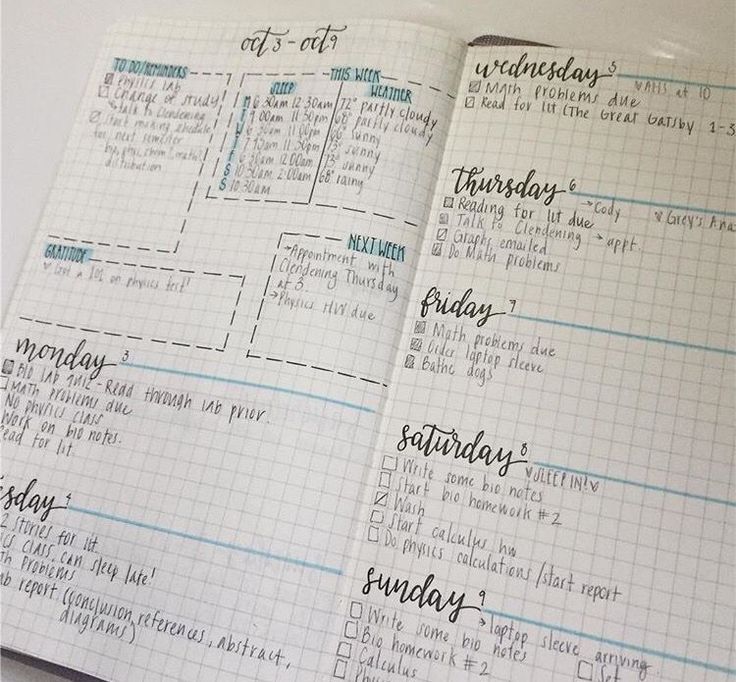 oct 3 - oct 9
TO DO/REMINDERS
Physics lab
Change of study
↳ talk to Clendening
Start making schedule
for next semester
bio, phys, chem, math,
distribution
THIS WEEK
SLEEP
M 6:30am 12:30am
T 9:00am 11:30pm
W 6:30am 11:00pm
T 7:15am 11:30pm
F 6:30am 12:00am
S 10:30am 2:00am
S 10:30am
WEATHER
72° partly cloudy
68° partly cloudy
66° sunny
73° sunny
73° sunny
68° rainy
GRATITUDE
♥ Got a 102 on physics test!
NEXT WEEK
→ Appointment with
Clendening Thursday
at 3
→ Physics HW due
monday 3
Bio lab quiz - Read through lab prior.
Math problems due
No physics class
Work on bio notes.
Read for lit
sday 4
2 stories for lit
ics class can sleep late!
th problems
ab report (conclusion, references, abstract,
diagrams)
wednesday 5
♥ AHS at 10
Math problems due
Read for lit (The Great Gatsby 1-3
thursday 6
→ Cody
♥ Grey's Ana
Reading for lit due
Talk to Clendening → appt.
Graphs emailed
Do Math problems
friday 7
Math problems due
Order laptop sleeve
Bathe dogs
saturday 8
♥ SLEEP IN! ♥
Write some bio notes
Start bio homework #2
Wash
Start calculus hw
Do physics calculations/start report
sunday 9
→ laptop sleeve arriving
Write some bio notes
Bio homework #2
Set
Calculus